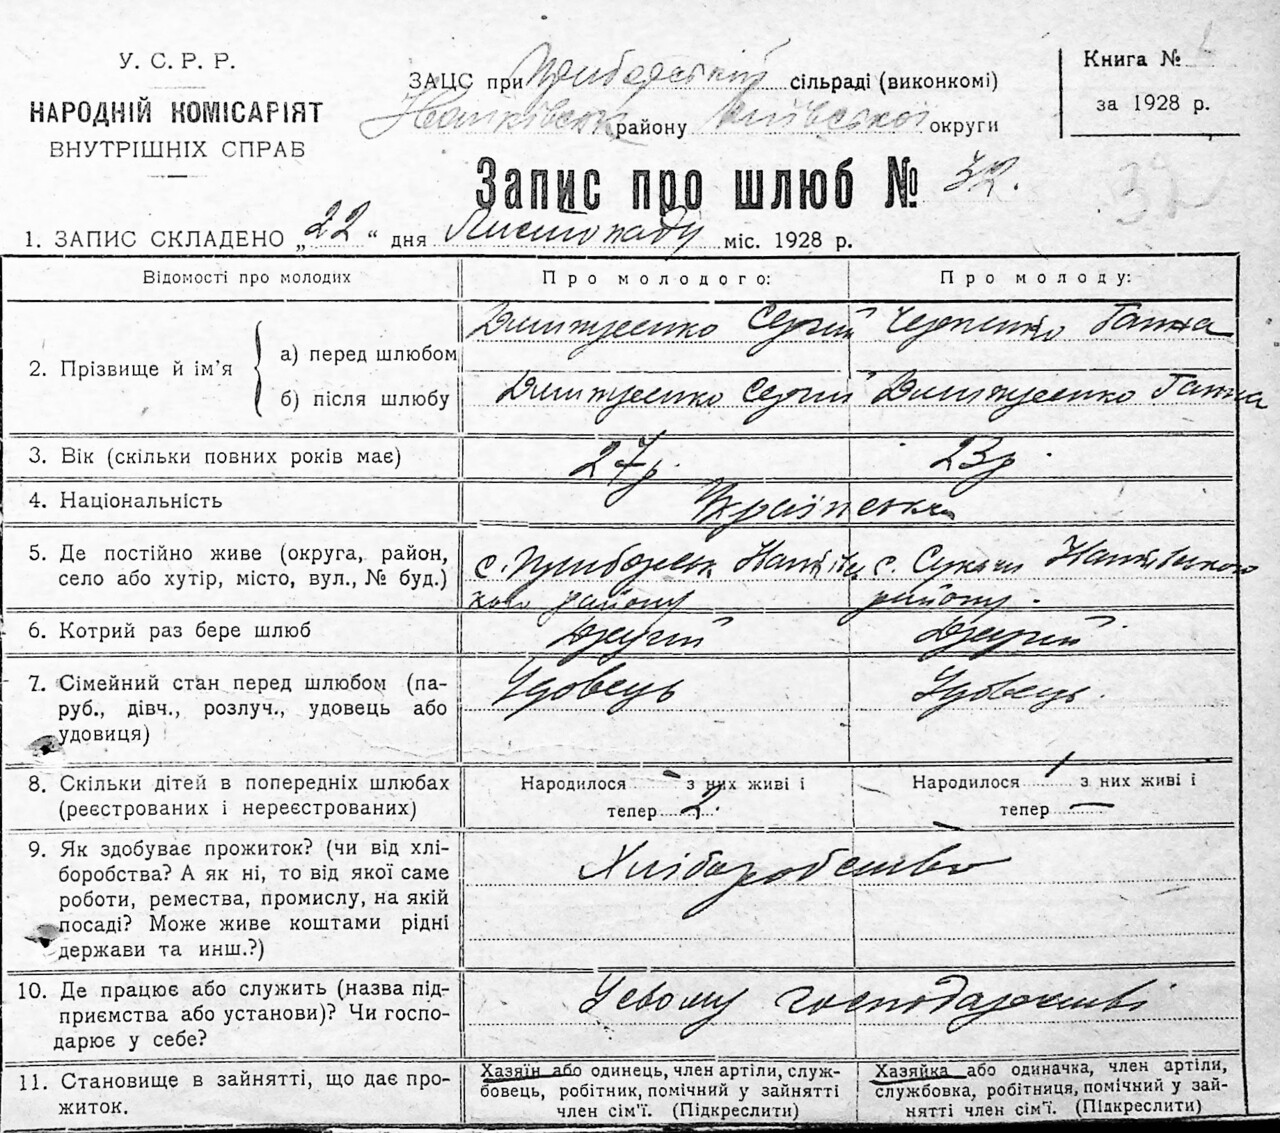 У. С. Р. Р.
НАРОДНІЙ КОМІСАРІЯТ
ВНУТРІШНІХ СПРАВ
ЗАЦС при Приборській сільраді (виконкомі)
району Київської округи
Книга №
за 1928 р.
Запис про шлюб № 32.
32
1. ЗАПИС СКЛАДЕНО „22“ дня Листопаду міс. 1928 р.
Відомості про молодих
Про молодого:
Про молоду:
2. Прізвище й ім’я
а) перед шлюбом
Дмитренко Сергій
Ганна
б) після шлюбу
Дмитренко Сергій
Дмитренко Ганна
3. Вік (скільки повних років має)
27 р.
23 р.
4. Національність
Українська
5. Де постійно живе (округа, район,
село або хутір, місто, вул., № буд.)
с. Приборськ
району
с. Сукачі
району.
6. Котрий раз бере шлюб
Другий
Другий
7. Сімейний стан перед шлюбом (па-
руб., дівч., розлуч., удовець або
удовиця)
Удовець
Удовець.
8. Скільки дітей в попередніх шлюбах
(реєстрованих і нереєстрованих)
Народилося - з них живі і
тепер 2.
Народилося 1 з них живі і
тепер —
9. Як здобуває прожиток? (чи від хлі-
боробства? А як ні, то від якої саме
роботи, ремества, промислу, на якій
посаді? Може живе коштами рідні
держави та инш.?)
Хліборобство
10. Де працює або служить (назва під-
приємства або установи)? Чи госпо-
дарює у себе?
У свому господарстві
11. Становище в зайнятті, що дає про-
житок.
Хазяїн або одинець, член артілі, служ-
бовець, робітник, помічний у зайнятті
член сім’ї. (Підкреслити)
Хазяйка або одиначка, член артілі,
службовка, робітниця, помічний у зай-
нятті член сім’ї. (Підкреслити)